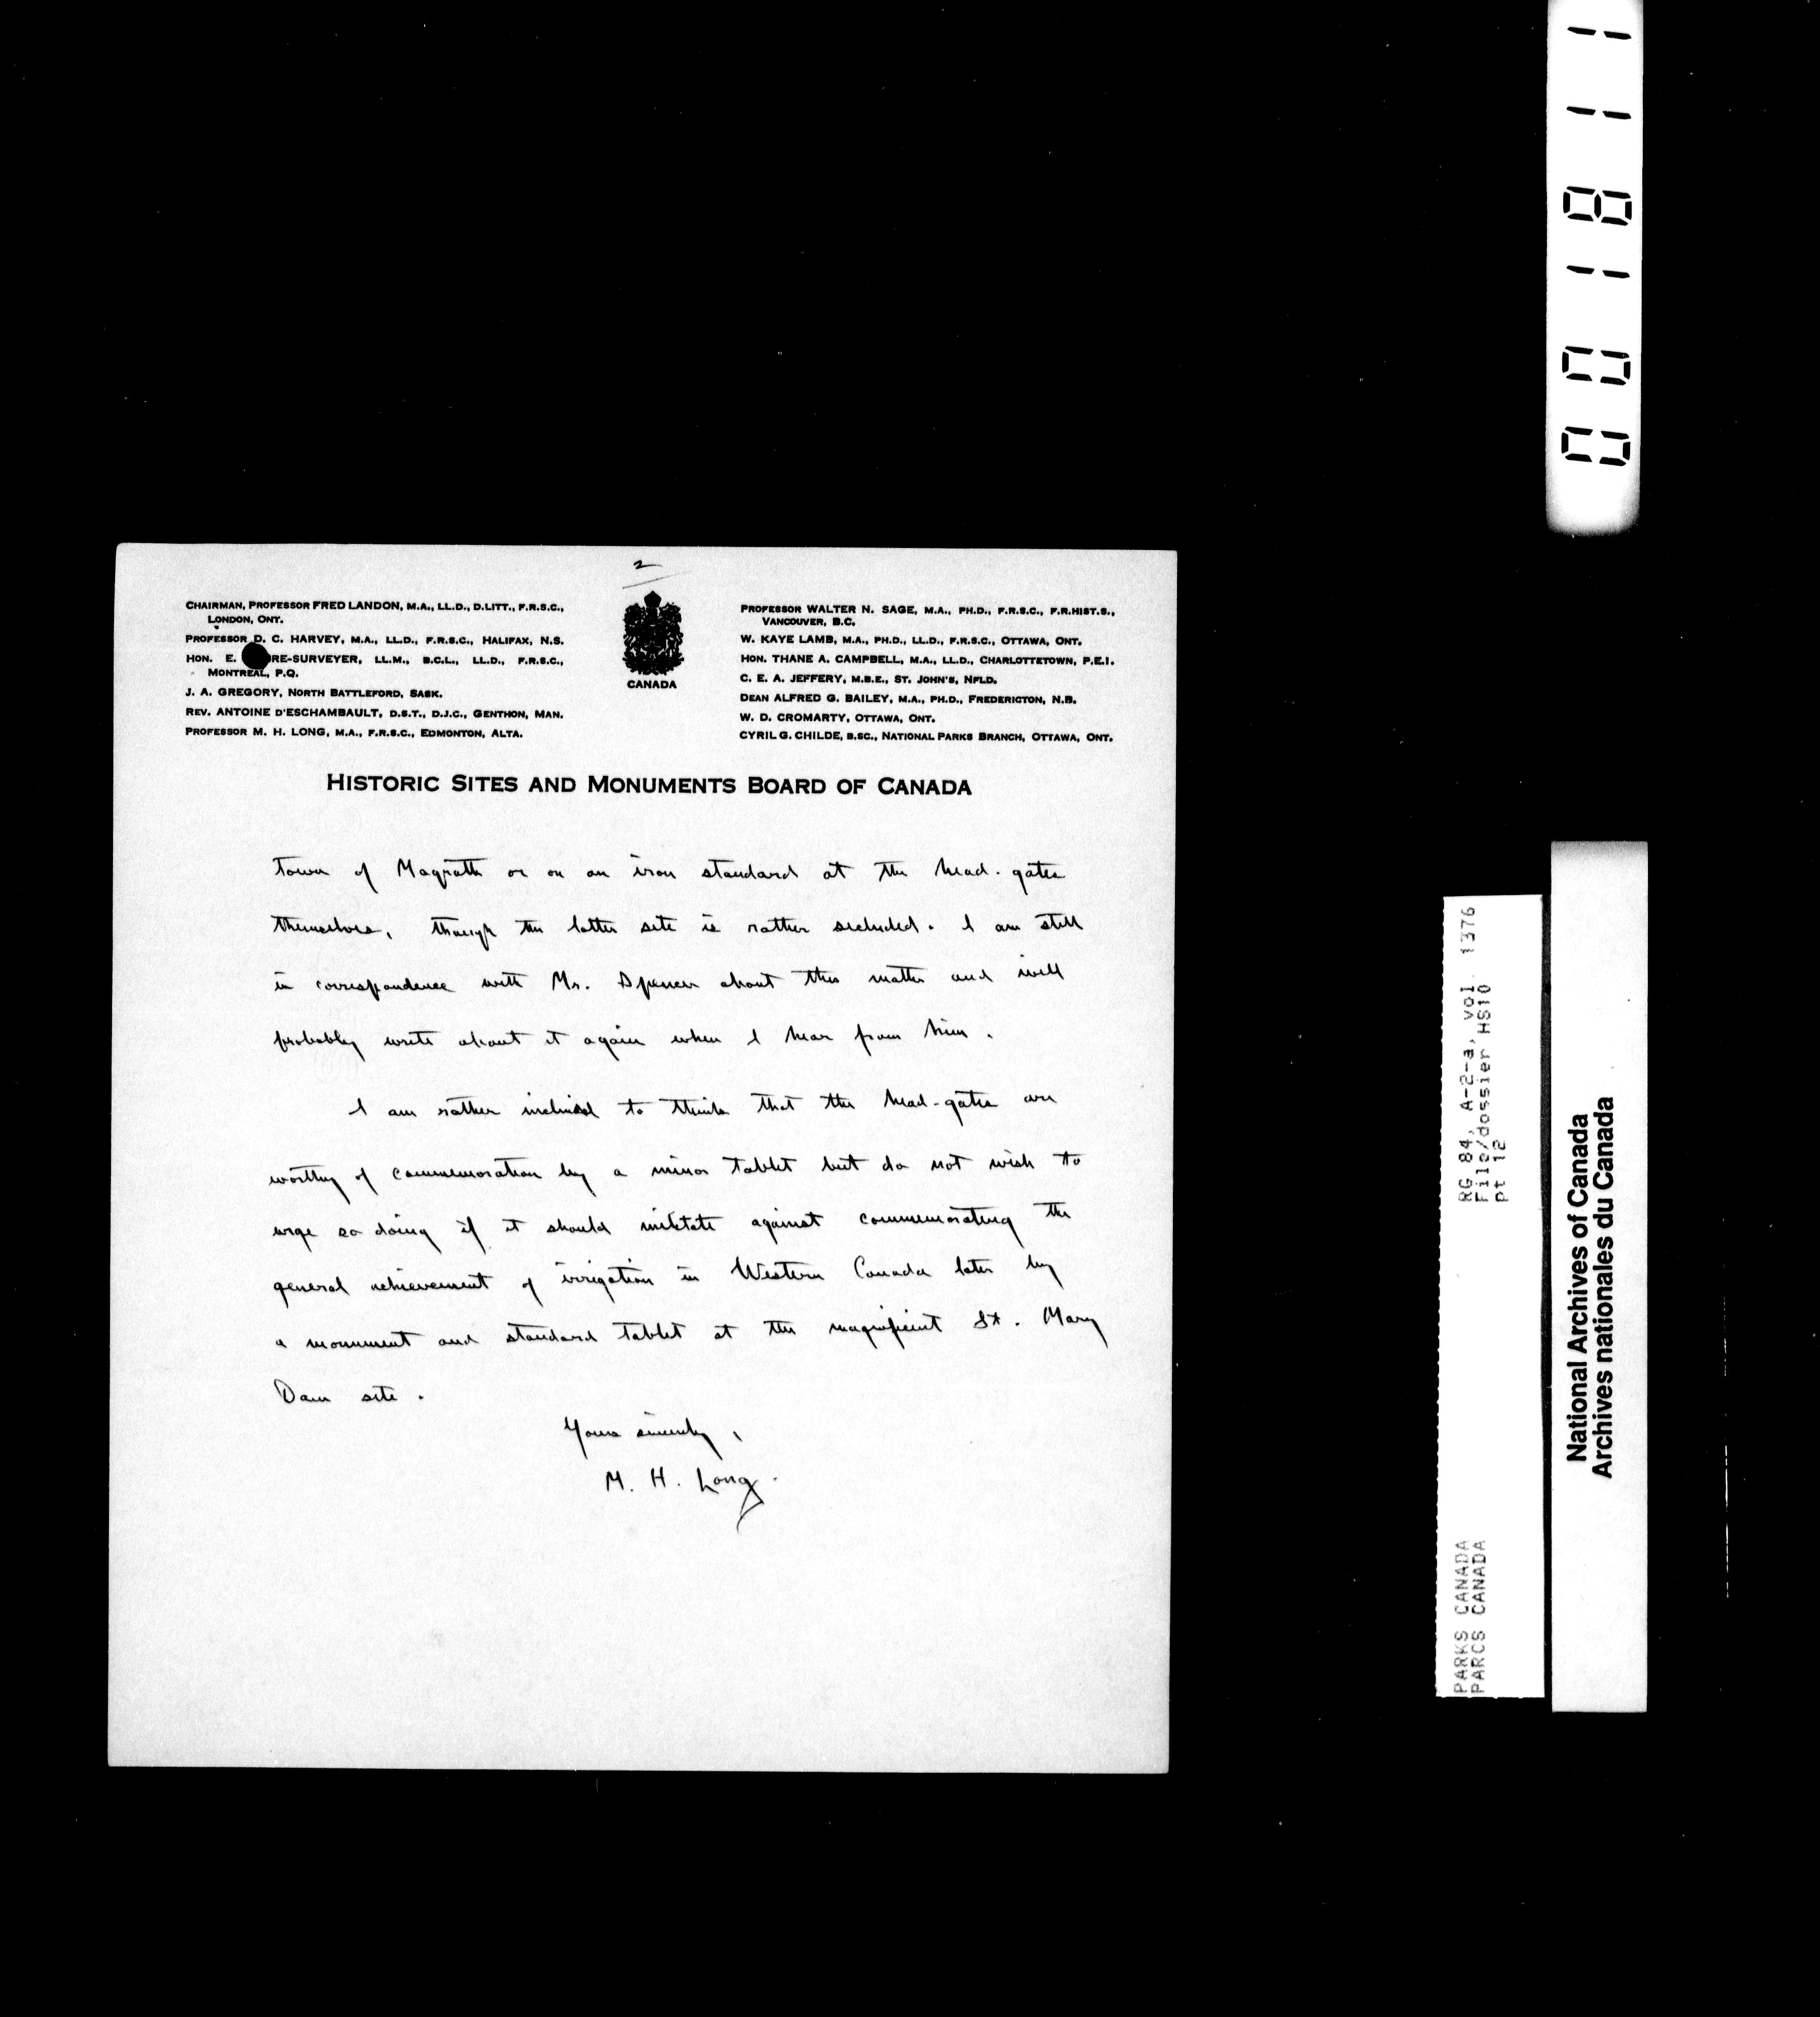 2
CHAIRMAN, PROFESSOR FRED LANDON, M.A., LL.D., D.LITT., F.R.S.C.,
LONDON, ONT.
PROFESSOR D. C. HARVEY, M.A., LL.D., F.R.S.C., HALIFAX, N.S.
HON. E. RE-SURVEYER, LL.M., B.C.L., LL.D., F.R.S.C.,
MONTREAL, P.Q.
J. A. GREGORY, NORTH BATTLEFORD, SASK.
REV. ANTOINE D'ESCHAMBAULT, D.S.T., D.J.C., GENTHON, MAN.
PROFESSOR M. H. LONG, M.A., F.R.S.C., EDMONTON, ALTA.
CANADA
PROFESSOR WALTER N. SAGE, M.A., PH.D., F.R.S.C., F.R.HIST.S.,
VANCOUVER, B.C.
W. KAYE LAMB, M.A., PH.D., LL.D., F.R.S.C., OTTAWA, ONT.
HON. THANE A. CAMPBELL, M.A., LL.D., CHARLOTTETOWN, P.E.I.
C. E. A. JEFFERY, M.B.E., ST. JOHN'S, NFLD.
DEAN ALFRED G. BAILEY, M.A., PH.D., FREDERICTON, N.B.
W. D. CROMARTY, OTTAWA, ONT.
CYRIL G. CHILDE, B.SC., NATIONAL PARKS BRANCH, OTTAWA, ONT.
HISTORIC SITES AND MONUMENTS BOARD OF CANADA
town of Magrath or on an iron standard at the head-gates
themselves, though the latter site is rather secluded. I am still
in correspondence with Mr. Spencer about this matter and will
probably write about it again when I hear from him.
I am rather inclined to think that the head-gates are
worthy of commemoration by a minor tablet but do not wish to
urge so doing if it should militate against commemorating the
general achievement of irrigation in Western Canada later by
a monument and standard tablet at the magnificent St. Mary
Dam site.
Yours sincerely,
M. H. Long.
001811
RG 84, A-2-a, vol. 1376
File/dossier HS10
pt 12
PARKS CANADA
PARCS CANADA
National Archives of Canada
Archives nationales du Canada